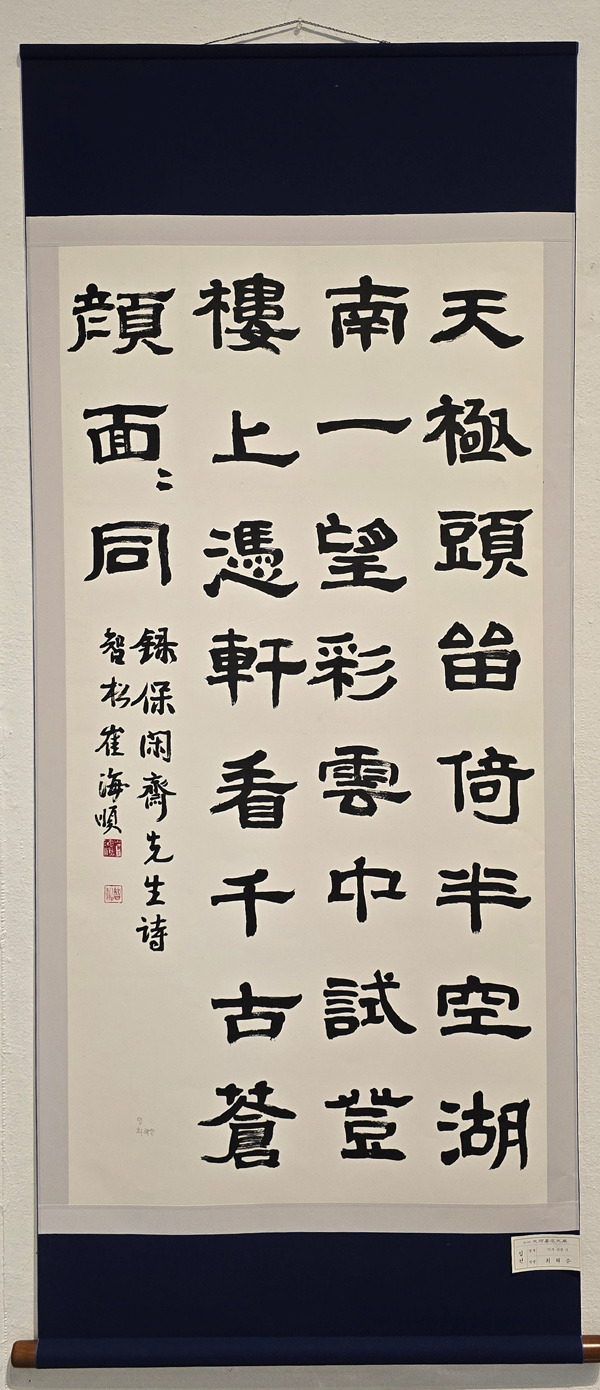 天極頭畱倚半空湖
南一望彩雲中試登
樓上憑軒看千古蒼
顔面〻同
錄保閑齋先生詩
智松崔海順
입선
최해순